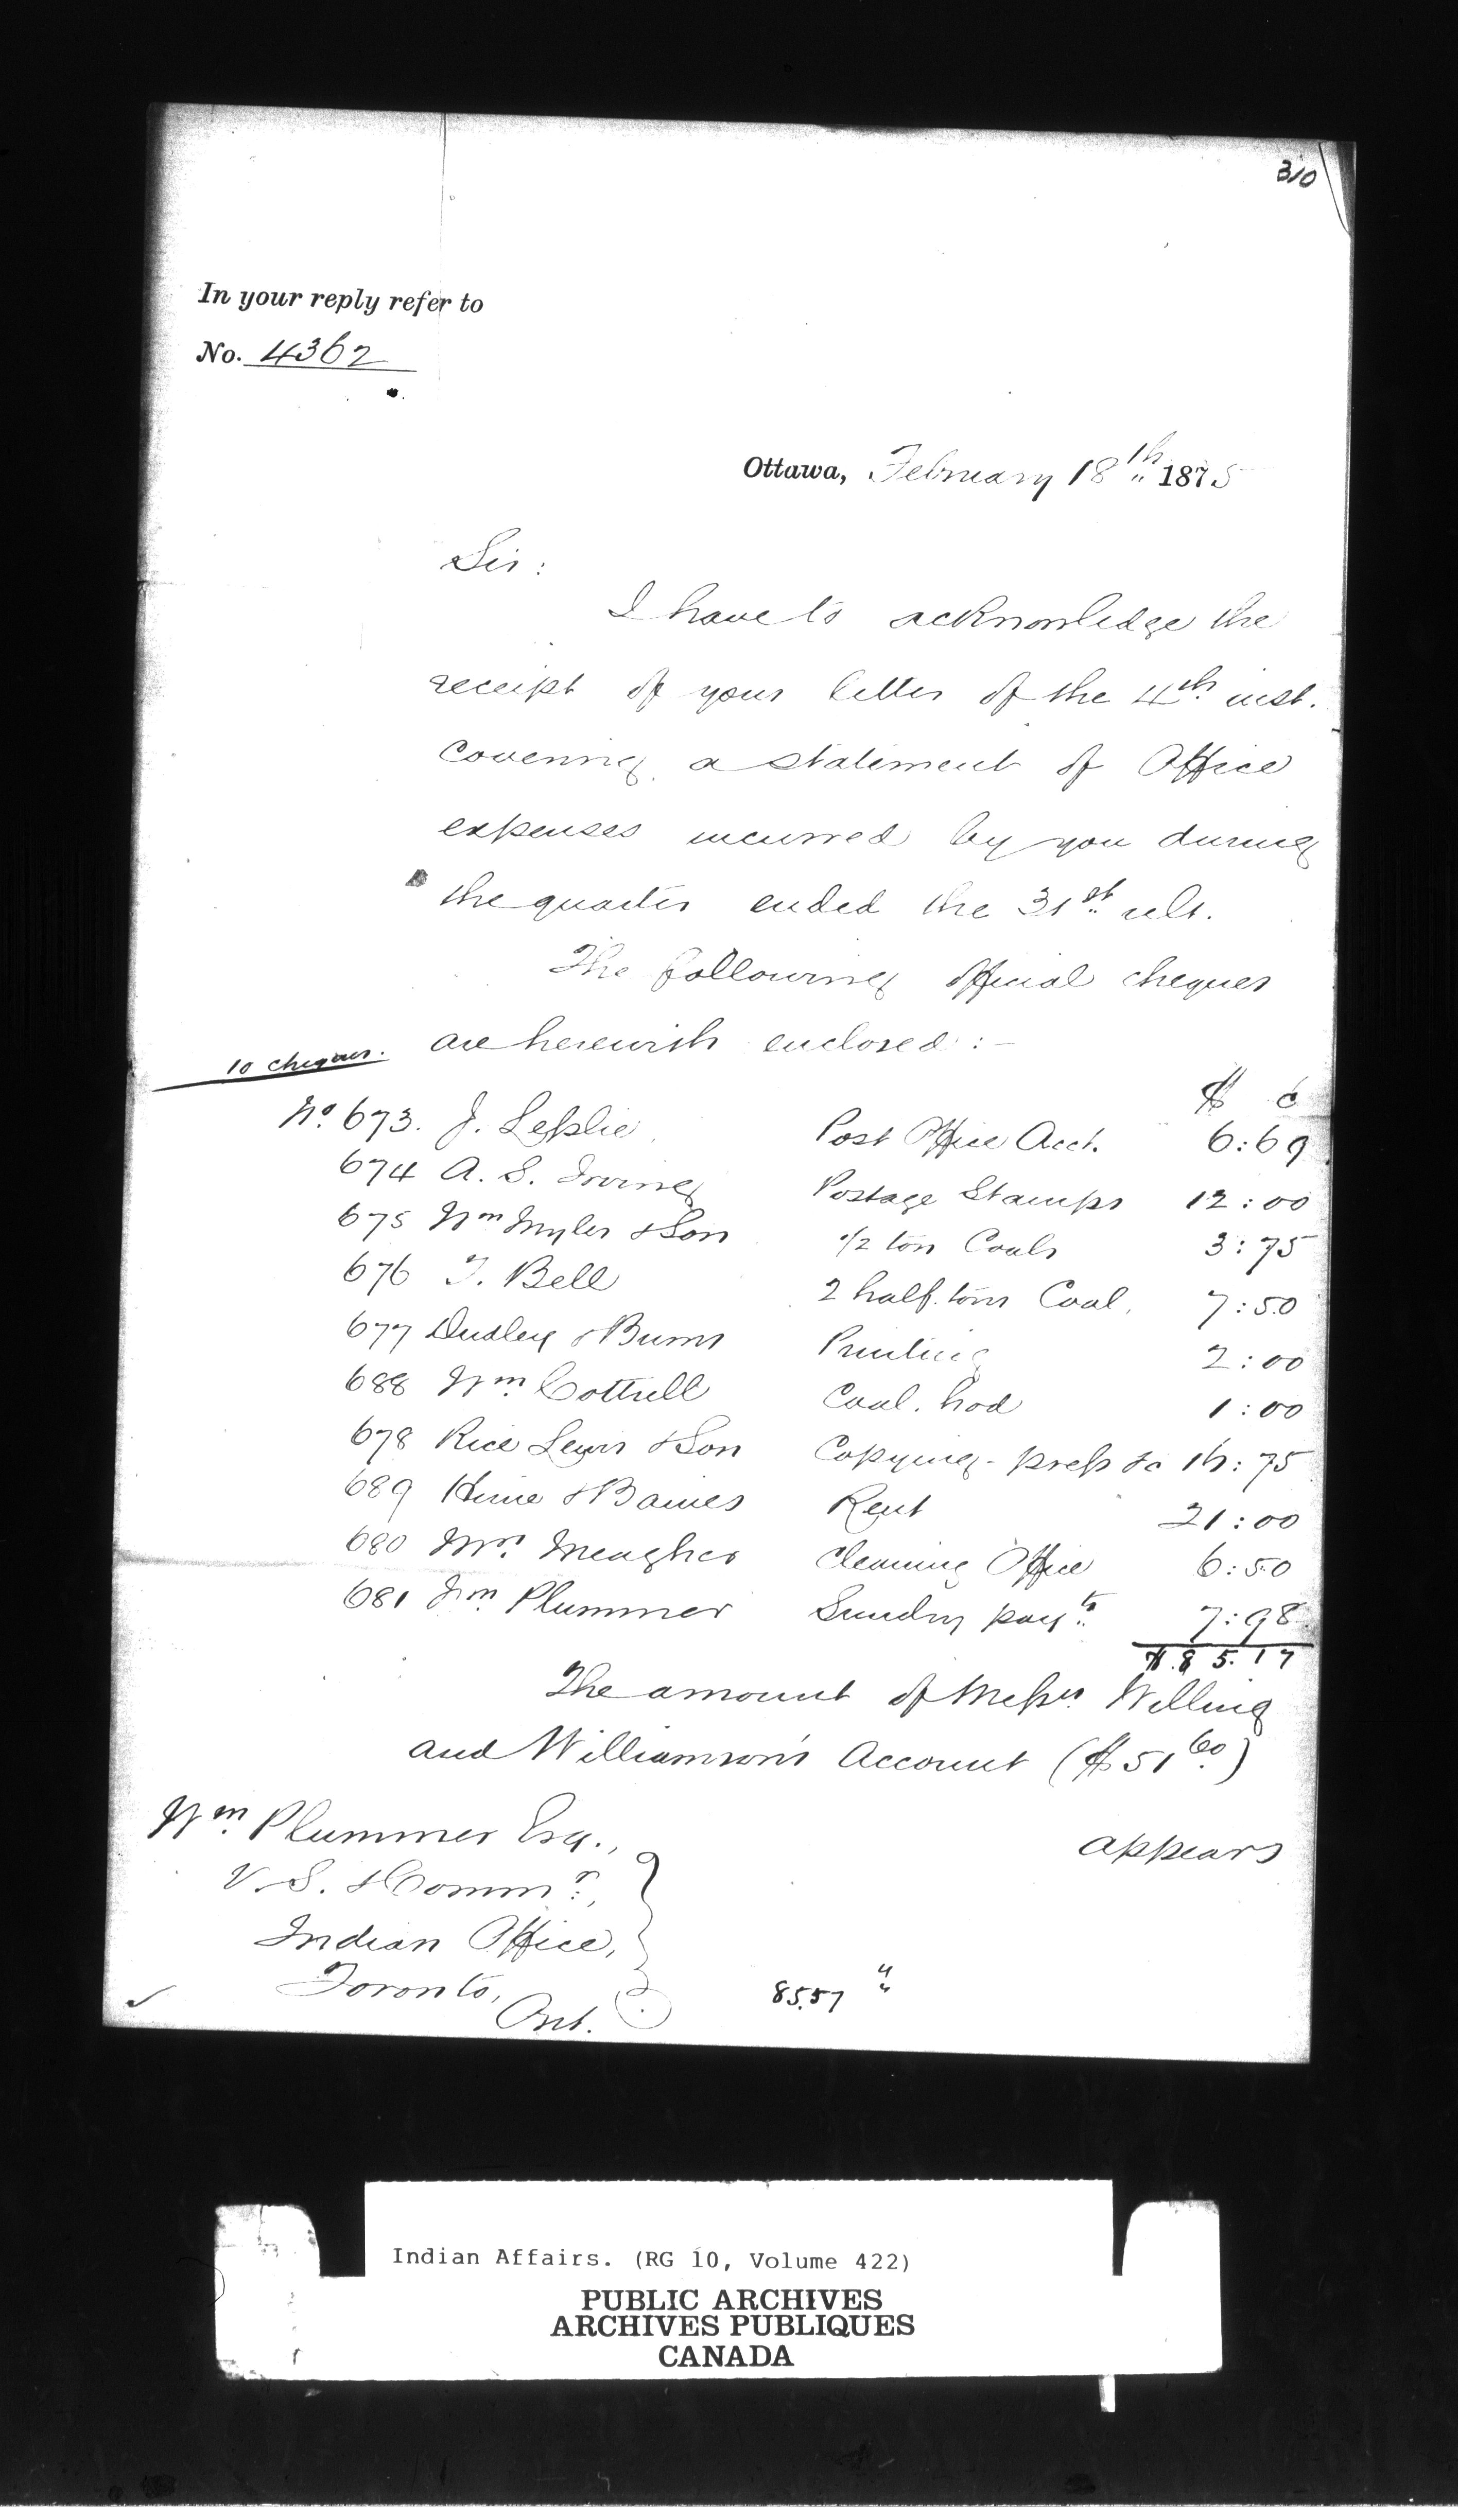 310
In your reply refer to
No. 4362
Ottawa, February 18th 1875
Sir:
I have to acknowledge the
receipt of your letter of the 4th inst.
covering a statement of Office
expenses incurred by you during
the quarter ended the 31st ult.
The following official cheques
are herewith enclosed:-
10 cheques.
$ c
No. 673. J. Leslie Post Office Acct. 6:69
674 A. S. Irving Postage Stamps 12:00
675 Wm Myles & Son 1/2 ton Coals 3:75
676 T. Bell 2 half tons Coal, 7:50
677 Dudley & Burns Printing 2:00
688 Wm. Cottrell Coal. hod 1:00
678 Rice Lewis & Son Copying-press &c 16:75
689 Hime & Baines Rent 21:00
680 Mrs. Meagher Cleaning Office 6:50
681 Wm. Plummer Sundry payts 7:98
$.85.17
The amount of Messrs. Willing
and Williamson's Account ($51 60)
appears
Wm. Plummer Esq.,
V. S. & Commr.,
Indian Office,
Toronto,
Ont.
85.57 "
Indian Affairs. (RG 10, Volume 422)
PUBLIC ARCHIVES
ARCHIVES PUBLIQUES
CANADA